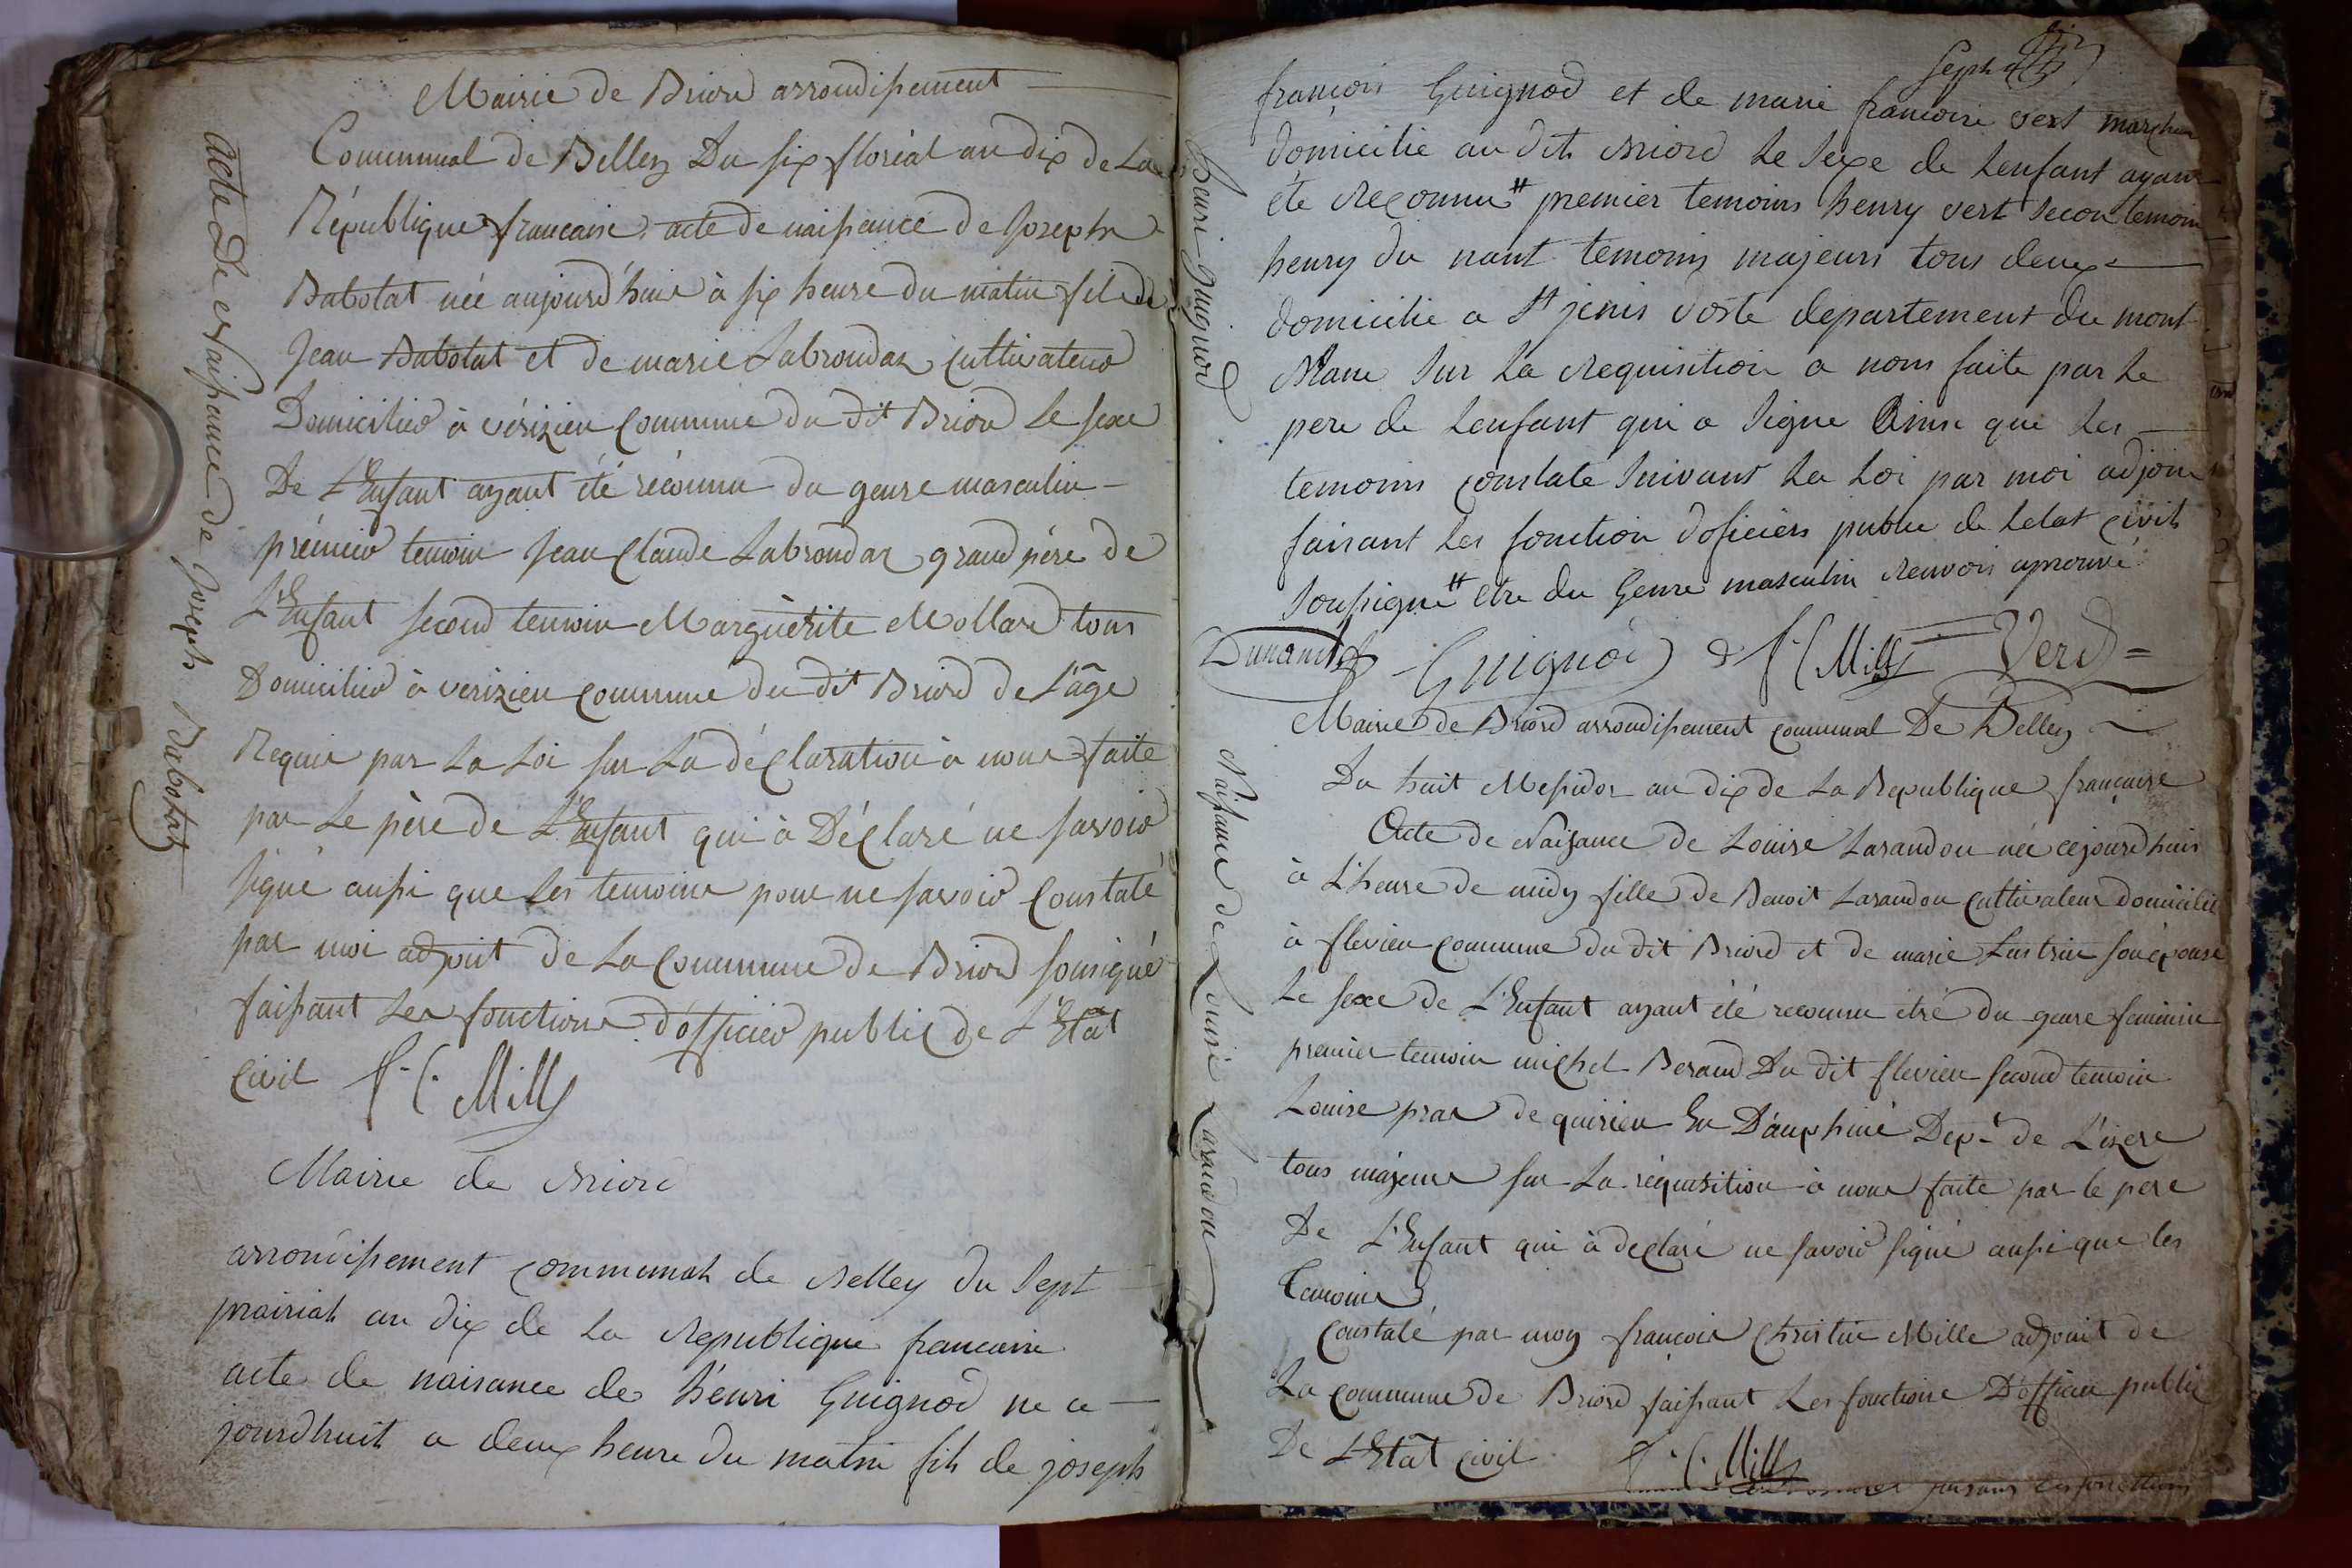 Mairie de Briord arrondissement
Communal de Belley Du six floréal an dix de La
République francaise. acte de naissance de Joseph
Babolat née aujourd'huis à six heure du matin fils de
Jean Babolat et de marie Labrondaz cultivateur
Domicilier à vérizieu Commune du dit Briord Le sexe
De L'Enfant ayant été réconnu du genre masculin
prémier temoin Jean Claude Labrondaz grand père de
L'Enfant second temoin Marguérite Mollard tous
Domicilier à verizieu commune du dit Briord de L'âge
Requis par La Loi sur La déClaration à nous faite
par Le père de L'Enfant qui à DéClaré ne savoir
signé aussi que Les temoins pour ne savoir Constaté
par moi adjoint de La Commune de Briord sousigné
faissant Les fonctions d'officier public de L'Etat
Civil f. C. Mille
acte de Naissance de Joseph Babolat
Mairie de Briord
arrondissement communal de Belley du sept
prairial an dix de La Republique francaise
acte de naisance de hénri Guignod ne ce
jourdhuit a deux heure du matin fils de joseph
henri Guignod
françois Guignod et de marie francoise vert
domicilie au dit Briord Le sexe de Lenfant ayant
ete Reconnu # premier temoins henry vert secon temoin
henry du nant temoins majeurs tous deux
domicilie a St jenis doste departement du mont
Blanc sur La Requisition a nous faite par Le
pere de Lenfant qui a signe Ainsi que Les
temoins constate suivant La Loi par moi adjoin
faisant Les fonction doficiers public de Letat civil
soussigne # etre du Genre masculin Renvois aprouvé
Dunant Guignod f. C. Mille Verd
Mairie de Briord arrondissement communal De Belley
Du huit Messidor an dix de La Republique française
Acte de Naissance de Louise Larandon née cejourdhuis
à L'heure de midy fille de Benoit Larandon Cultivateur domicilié
à flevieu commune du dit Briord et de marie Lustrin son épouse
Le sexe de L'Enfant ayant été reconnu etré du genre feminin
premier temoin michel Beraud Du dit flevieu second temoin
Louise prat de quirieu En Dauphiné Dep.t de L'izere
tous majeurs sur La réquisition à nous faite par le pere
De L'Enfant qui à declaré ne savoir signé aussi que les
Temoins
Constaté par moy françois Christin Mille adjoint de
La commune de Briord faissant Les fonctions D'officier public
De L'Etat civil f. C. Mille
Naissance de Louise Larandon